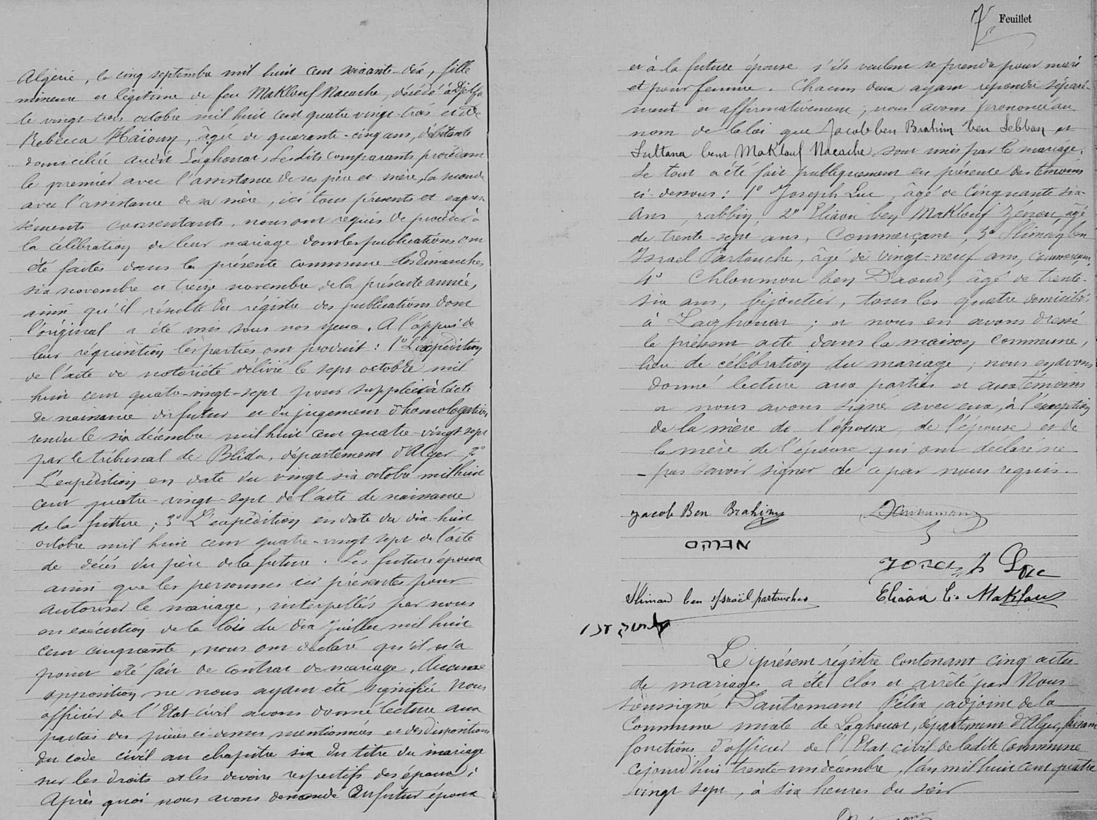 Algérie, le cinq septembre mil huit cent soixante-dix, fille
mineure et légitime de feu Maklouf Nacache, décédé à
le vingt trois octobre mil huit cent quatre vingt trois et de
Rebecca Haïoun, âgée de quarante-cinq ans,
domiciliée au dit Laghouat. Lesdits comparants procédant
le premier avec l'assistance de ses père et mère, la seconde
avec l'assistance de sa mère, ici tous présents et expres-
sément consentants, nous ont requis de procéder à
la célébration de leur mariage dont les publications ont
été faites dans la présente commune les dimanches
six novembre et treize novembre de la présente année,
ainsi qu'il résulte du régistre des publications dont
l'original a été mis sous nos yeux. A l'appui de
leur réquisition les parties ont produit : 1° L'expédition
de l'acte de notoriété délivré le sept octobre mil
huit cent quatre-vingt-sept pour suppléer à l'acte
de naissance du futur et du jugement d'homologation
rendu le six décembre mil huit cent quatre-vingt sept
par le tribunal de Blida, département d'Alger 2°
L'expédition en date du vingt six octobre mil huit
cent quatre-vingt-sept de l'acte de naissance
de la future ; 3° L'expédition en date du dix huit
octobre mil huit cent quatre-vingt sept de l'acte
de décès du père de la future. Les futurs époux
ainsi que les personnes ici présentes pour
autoriser le mariage, interpellés par nous
en exécution de la loi du dix juillet mil huit
cent cinquante, nous ont déclaré qu'il n'a
point été fait de contrat de mariage. Aucune
opposition ne nous ayant été signifiée Nous
officier de l'Etat Civil avons donné lecture aux
parties des pièces ci-dessus mentionnées et des dispositions
du code civil au chapitre six du titre du mariage
sur les droits et les devoirs respectifs des époux ;
Après quoi nous avons demandé au futur époux
Feuillet
et à la future épouse s'ils veulent se prendre pour mari
et pour femme. Chacun d'eux ayant répondu séparé-
ment et affirmativement ; nous avons prononcé au
nom de la loi que Jacob ben Brahim ben Sebban et
Sultana bent Maklouf Nacache, sont unis par le mariage.
Le tout a été fait publiquement en présence des témoins
ci-dessous : 1° Joseph Luc, âgé de cinquante six
ans, rabbin, 2° Eliaou ben Maklouf Zenou, âgé
de trente-sept ans, Commerçant, 3° Sliman ben
Israel Partouche, âgé de vingt-neuf ans, commerçant,
4° Chloumou ben Daoud, âgé de trente
six ans, bijoutier, tous les quatre domiciliés
à Laghouat ; et nous en avons dressé
le présent acte dans la maison commune,
lieu de célébration du mariage ; nous en avons
donné lecture aux parties et aux témoins
et nous avons signé avec eux, à l'exception
de la mère de l'époux, de l'épouse et de
la mère de l'épouse qui ont déclaré ne
pas savoir signer de ce par nous requis.
Jacob Ben Brahim
Dautremant
אברהם
Josef Luc
Sliman ben Israël partouche
Eliaou b. Maklouf
Le présent régistre contenant cinq actes
de mariages a été clos et arrêté par Nous
soussigné Dautremant Félix, adjoint de la
Commune mixte de Laghouat, département d'Alger, faisant
fonctions d'officier de l'Etat civil de ladite Commune
cejourd'hui trente-un décembre, l'an mil huit cent quatre
vingt sept, à six heures du soir